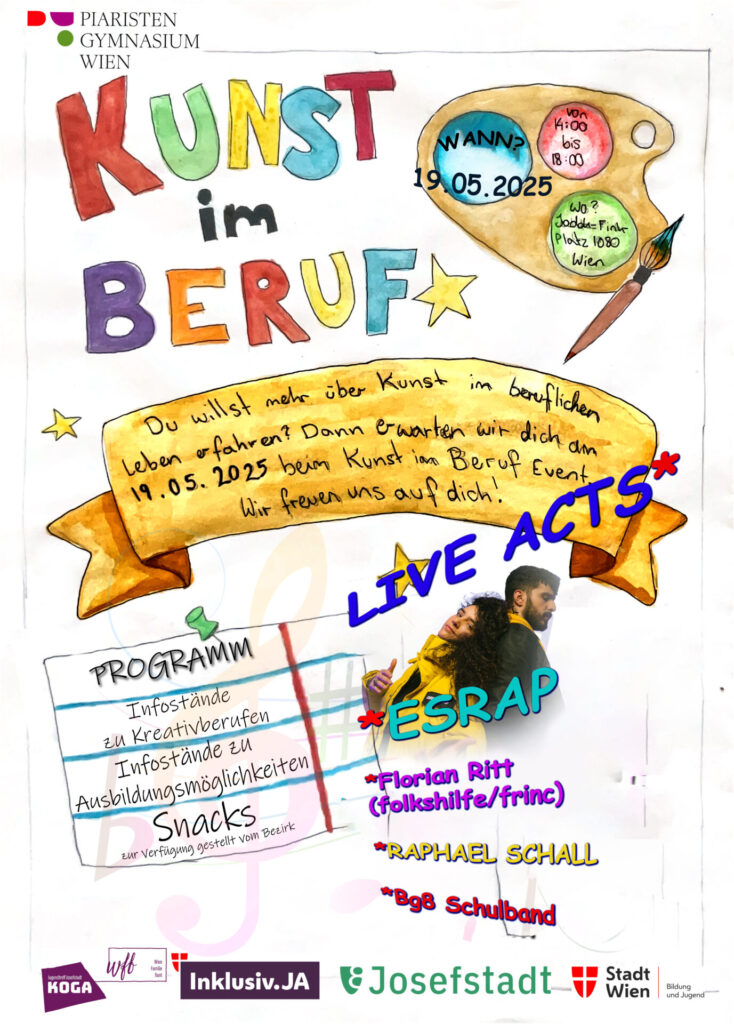 PIARISTEN
GYMNASIUM
WIEN
KUNST
im
BERUF
WANN?
19.05.2025
von
14:00
bis
18:00
Wo?
Jodok-Fink-
Platz 1080
Wien
Du willst mehr über Kunst im beruflichen
Leben erfahren? Dann erwarten wir dich am
19.05.2025 beim Kunst im Beruf Event.
Wir freuen uns auf dich!
LIVE ACTS*
PROGRAMM
Infostände
zu Kreativberufen
Infostände zu
Ausbildungsmöglichkeiten
Snacks
zur Verfügung gestellt vom Bezirk
*ESRAP
*Florian Ritt
(folkshilfe/frinc)
*RAPHAEL SCHALL
*Bg8 Schulband
Jugendtreff Josefstadt
KOGA
wff
Inklusiv.JA
Josefstadt
Stadt
Wien
Bildung
und Jugend